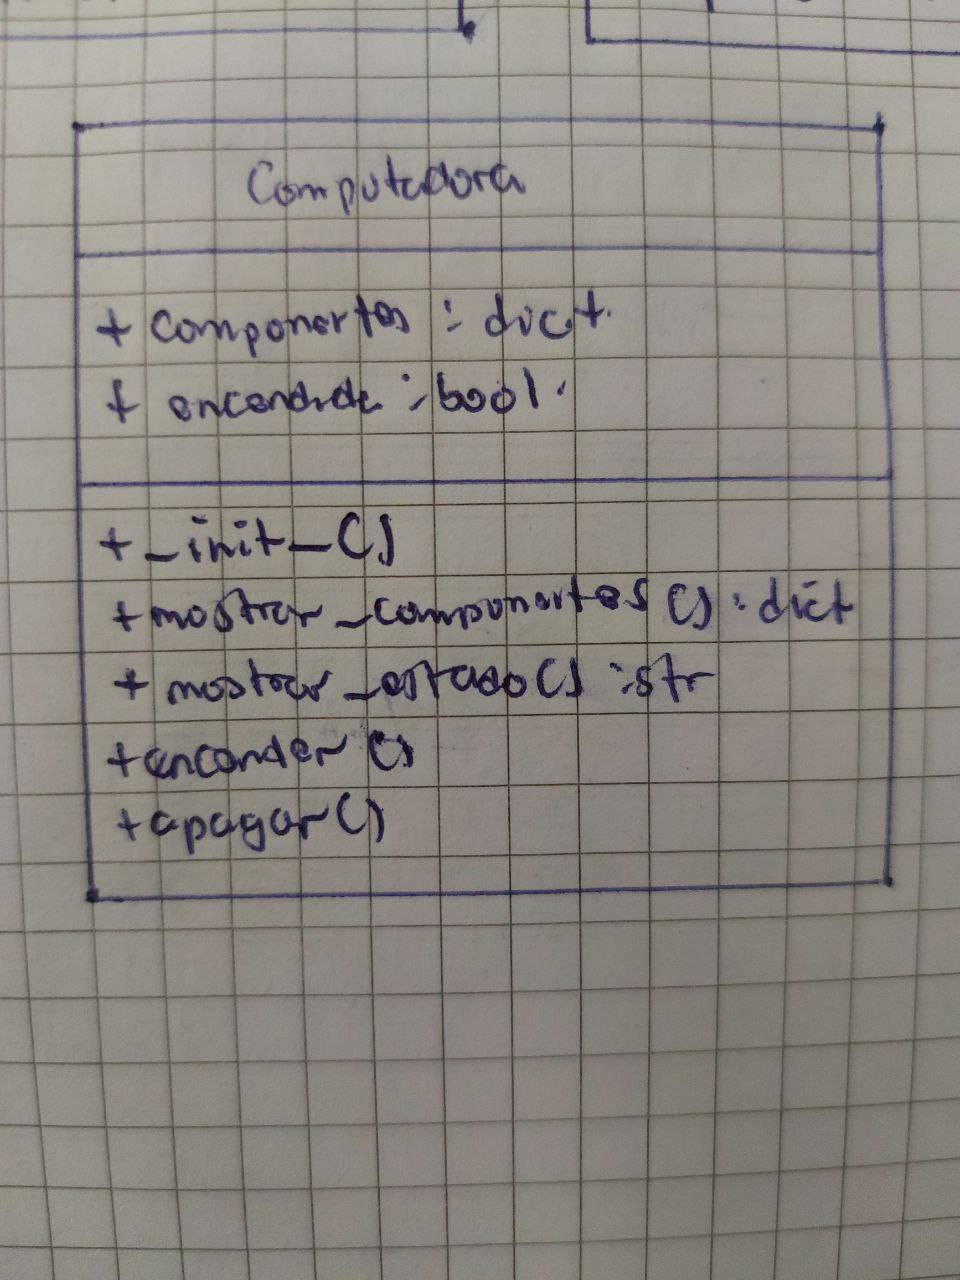 Computadora
+ componentes : dict.
+ encendida : bool.
+ _init_()
+ mostrar_componentes () : dict
+ mostrar_estado() : str
+ encender ()
+ apagar()